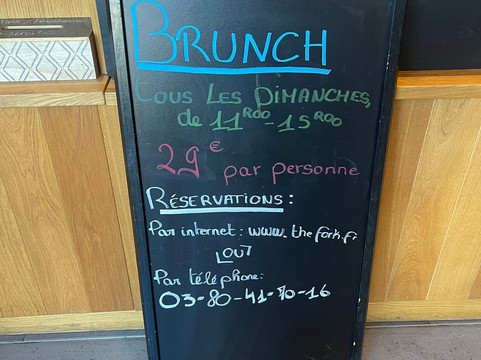 BRUNCH
TOUS LES DIMANCHES,
de 11H00-15H00
29€ par personne
RÉSERVATIONS :
Par internet : www.thefork.fr
LOU7
Par téléphone:
03-80-41-70-16